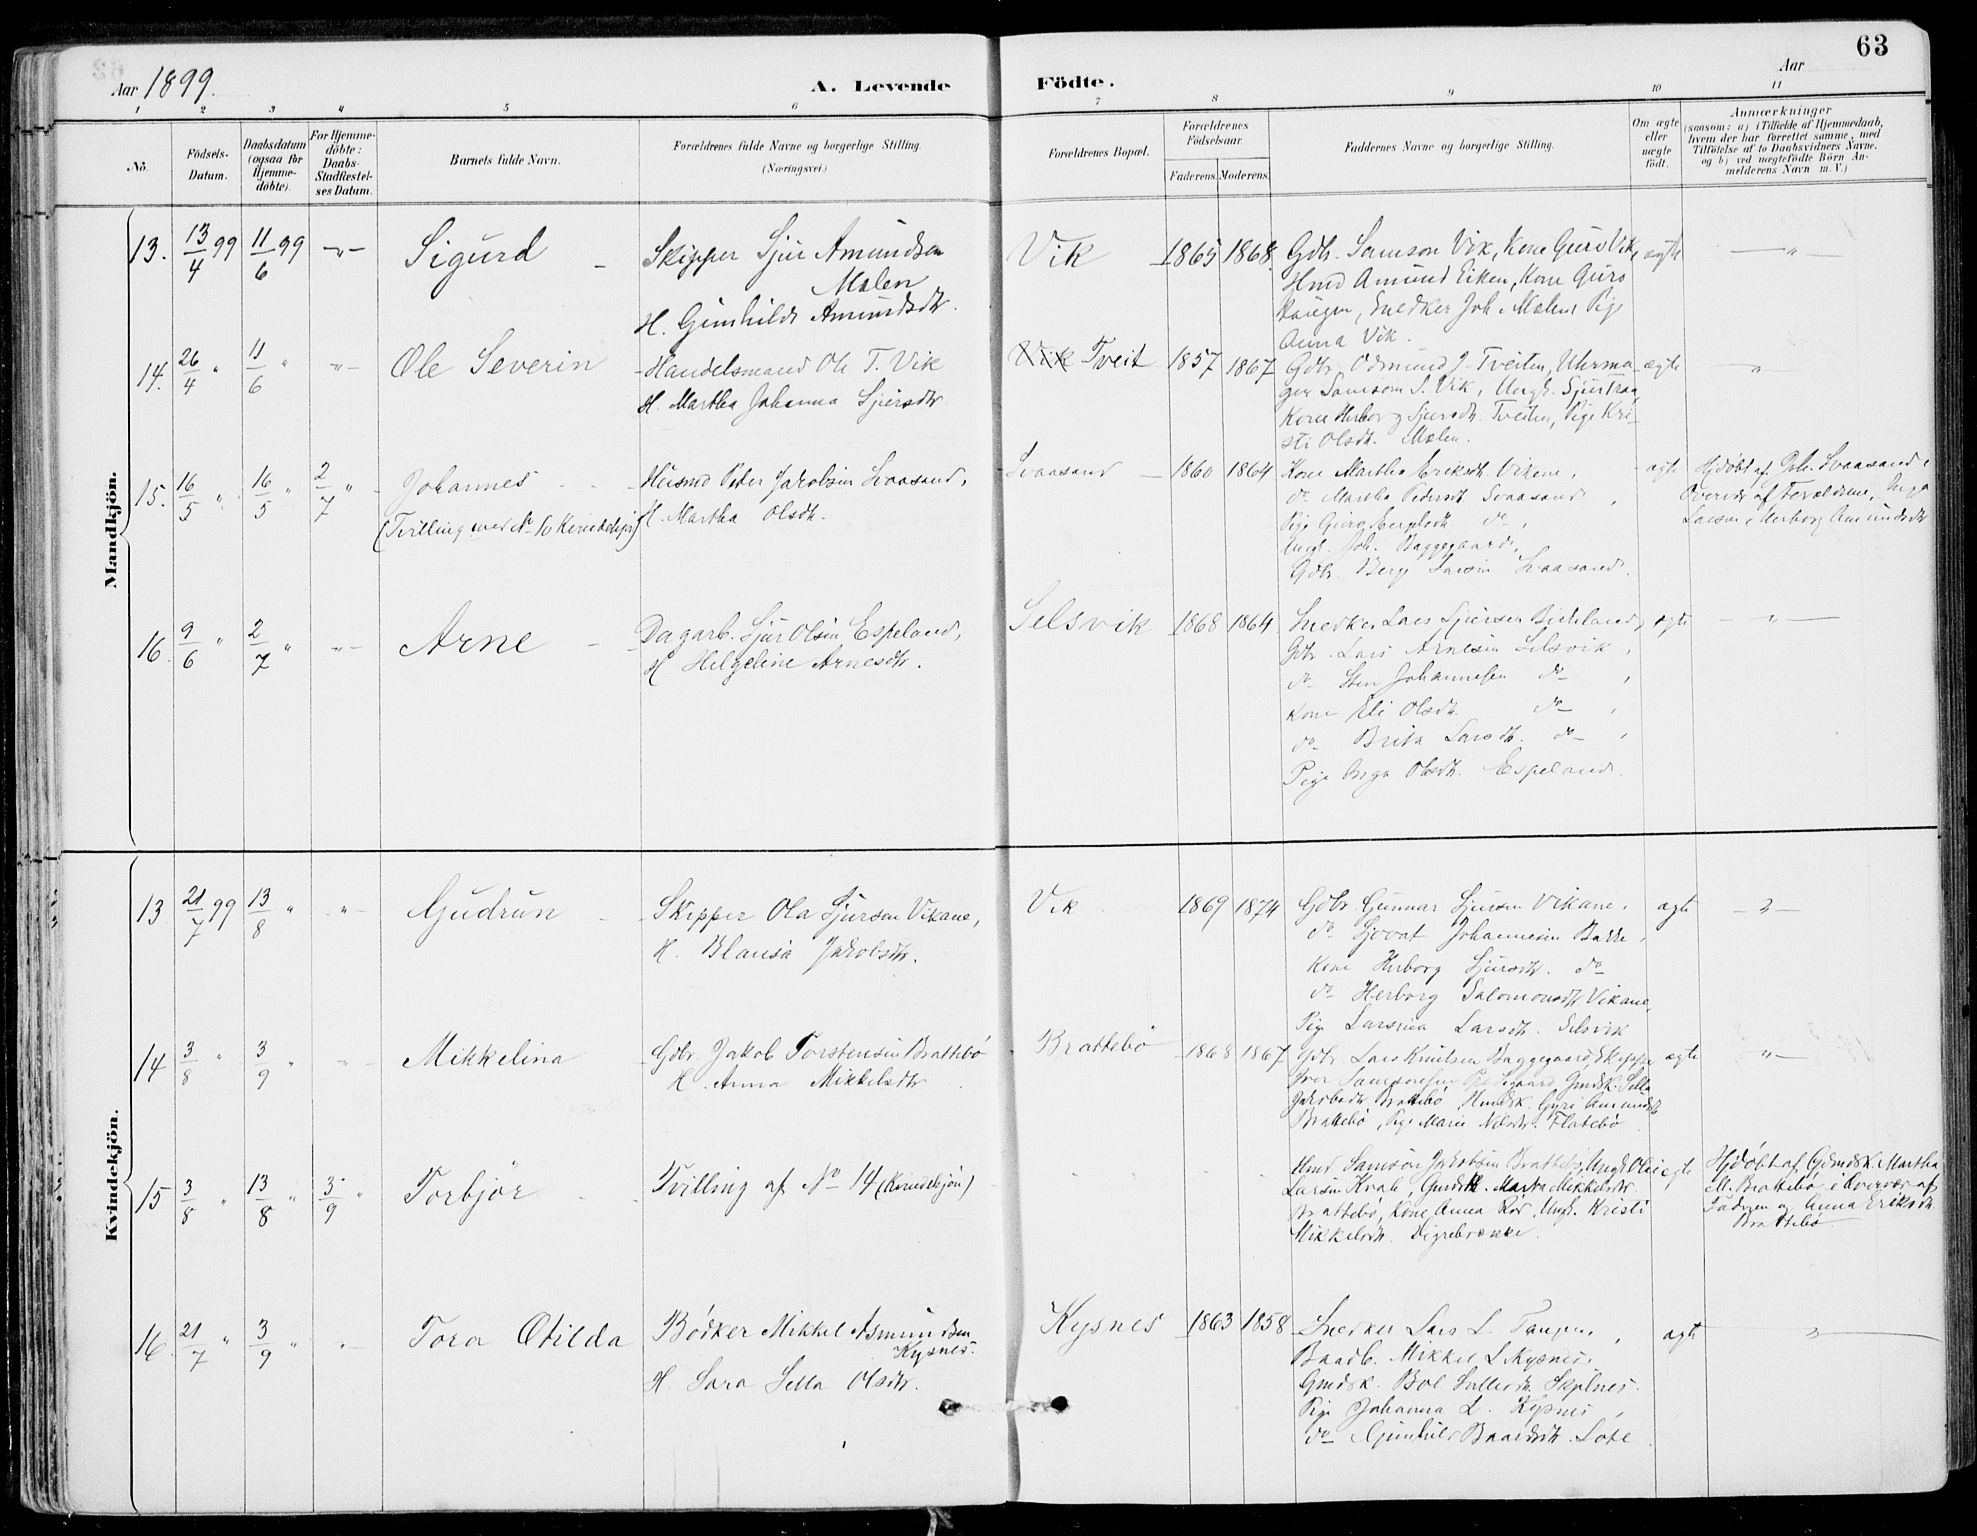 63
Aar 1899.
A. Levende Födte.
Aar
1 2 3 4 5 6 7 8 9 10 11
No.
Födsels-Datum.
Daabsdatum (ogsaa for Hjemmedöbte).
For Hjemmedöbte: Daabs-Stadfestelses Datum.
Barnets fulde Navn.
Forældrenes fulde Navne og borgerlige Stilling. (Næringsvei.)
Forældrenes Bopæl.
Forældrenes Födselsaar.
Faderens. Moderens.
Faddernes Navne og borgerlige Stilling.
Om ægte eller uægte födt.
Anmærkninger
(saasom: a) i Tilfælde af Hjemmedaab,
hvem der har forrettet samme, med
Tilföielse af to Daabsvidners Navne,
og b) ved uægtefödte Börn Anmelderens Navn m.V.)
Mandkjön.
13. 13/4 99 11/6 99 -"- Sigurd
Skipper Sjur Amundsen
Mælen
H. Gunhilde Amundsdtr.
Vik 1865 1868
Gdbr. Samson Vik, Kone Guro Vik,
Hmd Amund Eiken, Kone Guro
Snedker Joh. Mælen, Pige
Anna Vik.
ægte -"-
14. 26/4 " 11/6 " -"- Ole Severin
Handelsmand Ole T. Vik
H. Martha Johanna Sjursdtr.
Vik Tveit 1857 1867
Gdbr. Odmund J. Tveiten, Uhrma-
ger Samson S. Vik, Ungk. Sjur
Kone Herborg Sjursdtr. Tveiten, Pige Kri-
sti Olsdtr. Mælen.
ægte "
15. 16/5 " 16/5 " 2/7 " Johannes
(Tvilling med No 10 Kvindekjøn)
Husmd Peder Jakobsen Svaasand,
H. Martha Olsdtr.
Svaasand 1860 1864
Kone Martha Eriksdtr. Vikene,
do Martha Pedersdtr Svaasand,
Pige Guro do,
Ungk. Joh. Baggegaard,
Gdbr. Berge Larsen Svaasand.
ægte
Hjdøbt af Joh. Svaasand i
Overvær af Forældrene, Inga
Larsen, Herborg Amundsdtr
16. 9/6 " 2/7 " -"- Arne
Dagarb. Sjur Olsen Espeland,
H. Helgeline Arnesdtr.
Selsvik 1868 1864
Snedker Lars Sjursen
Gdbr. Lars Arnesen Selsvik,
do Sten Johannesen do,
Kone Eli Olsdtr. do,
do Brita Larsdtr. do,
Pige Inga Olsdtr. Espeland.
ægte -"-
Kvindekjön.
13. 21/7 99 13/8 " -"- Gudrun
Skipper Ola Sjursen Vikane,
H. Blansa Jakobsdtr.
Vik 1869 1874
Gdbr. Gunnar Sjursen Vikane,
do Sjovat Johannesen Bakke,
Kone Herborg Sjursdtr. do
do Herborg Salomonsdtr Vikane,
Pige Larsina Larsdtr. Selsvik
ægte -"-
14 3/8 " 3/9 " -"- Mikkelina
Gdbr. Jakob Torstensen Brattebø
H. Anna Mikkelsdtr.
Brattebø 1868 1867
Gdbr. Lars Knutsen Baggegaard, Skipper
Iver Samsonsen Gmdsk. Sella
Jakobsdtr Brattebø, Hmdsk. Guri Amundsdtr
Brattebø, Pige Marie Nilsdtr. Flatebø
ægte -"-
15 3/8 " 13/8 " 3/9 " Torbjør
Tvilling af No 14 (Kvindekjøn)
Hmd Samson Jakobsen Brattebø, Ungk Ole
Larsen Kvale, Gmdsk. Marta Mikkelsdtr
Brattebø, Kone Anna Rød, Ungk. Kristi
Mikkelsdtr. Digrebrække.
ægte
Hjdøbt af Gdmdsk. Martha
M. Brattebø i Overvær af
Faderen og Anna Eriksdtr.
Brattebø
16. 21/7 " 3/9 " " Tora Otilda
Bødker Mikkel Asmundsen
Kysnes.
H. Sara Sella Olsdtr.
Kysnes 1863 1858
Snedker Lars L. Tangen,
Baadb. Mikkel L Kysnes,
Gmdsk. Bol Skjelnes.
Pige Johanna L. Kysnes,
do Gunhild Baardsdtr. Lote
ægte "